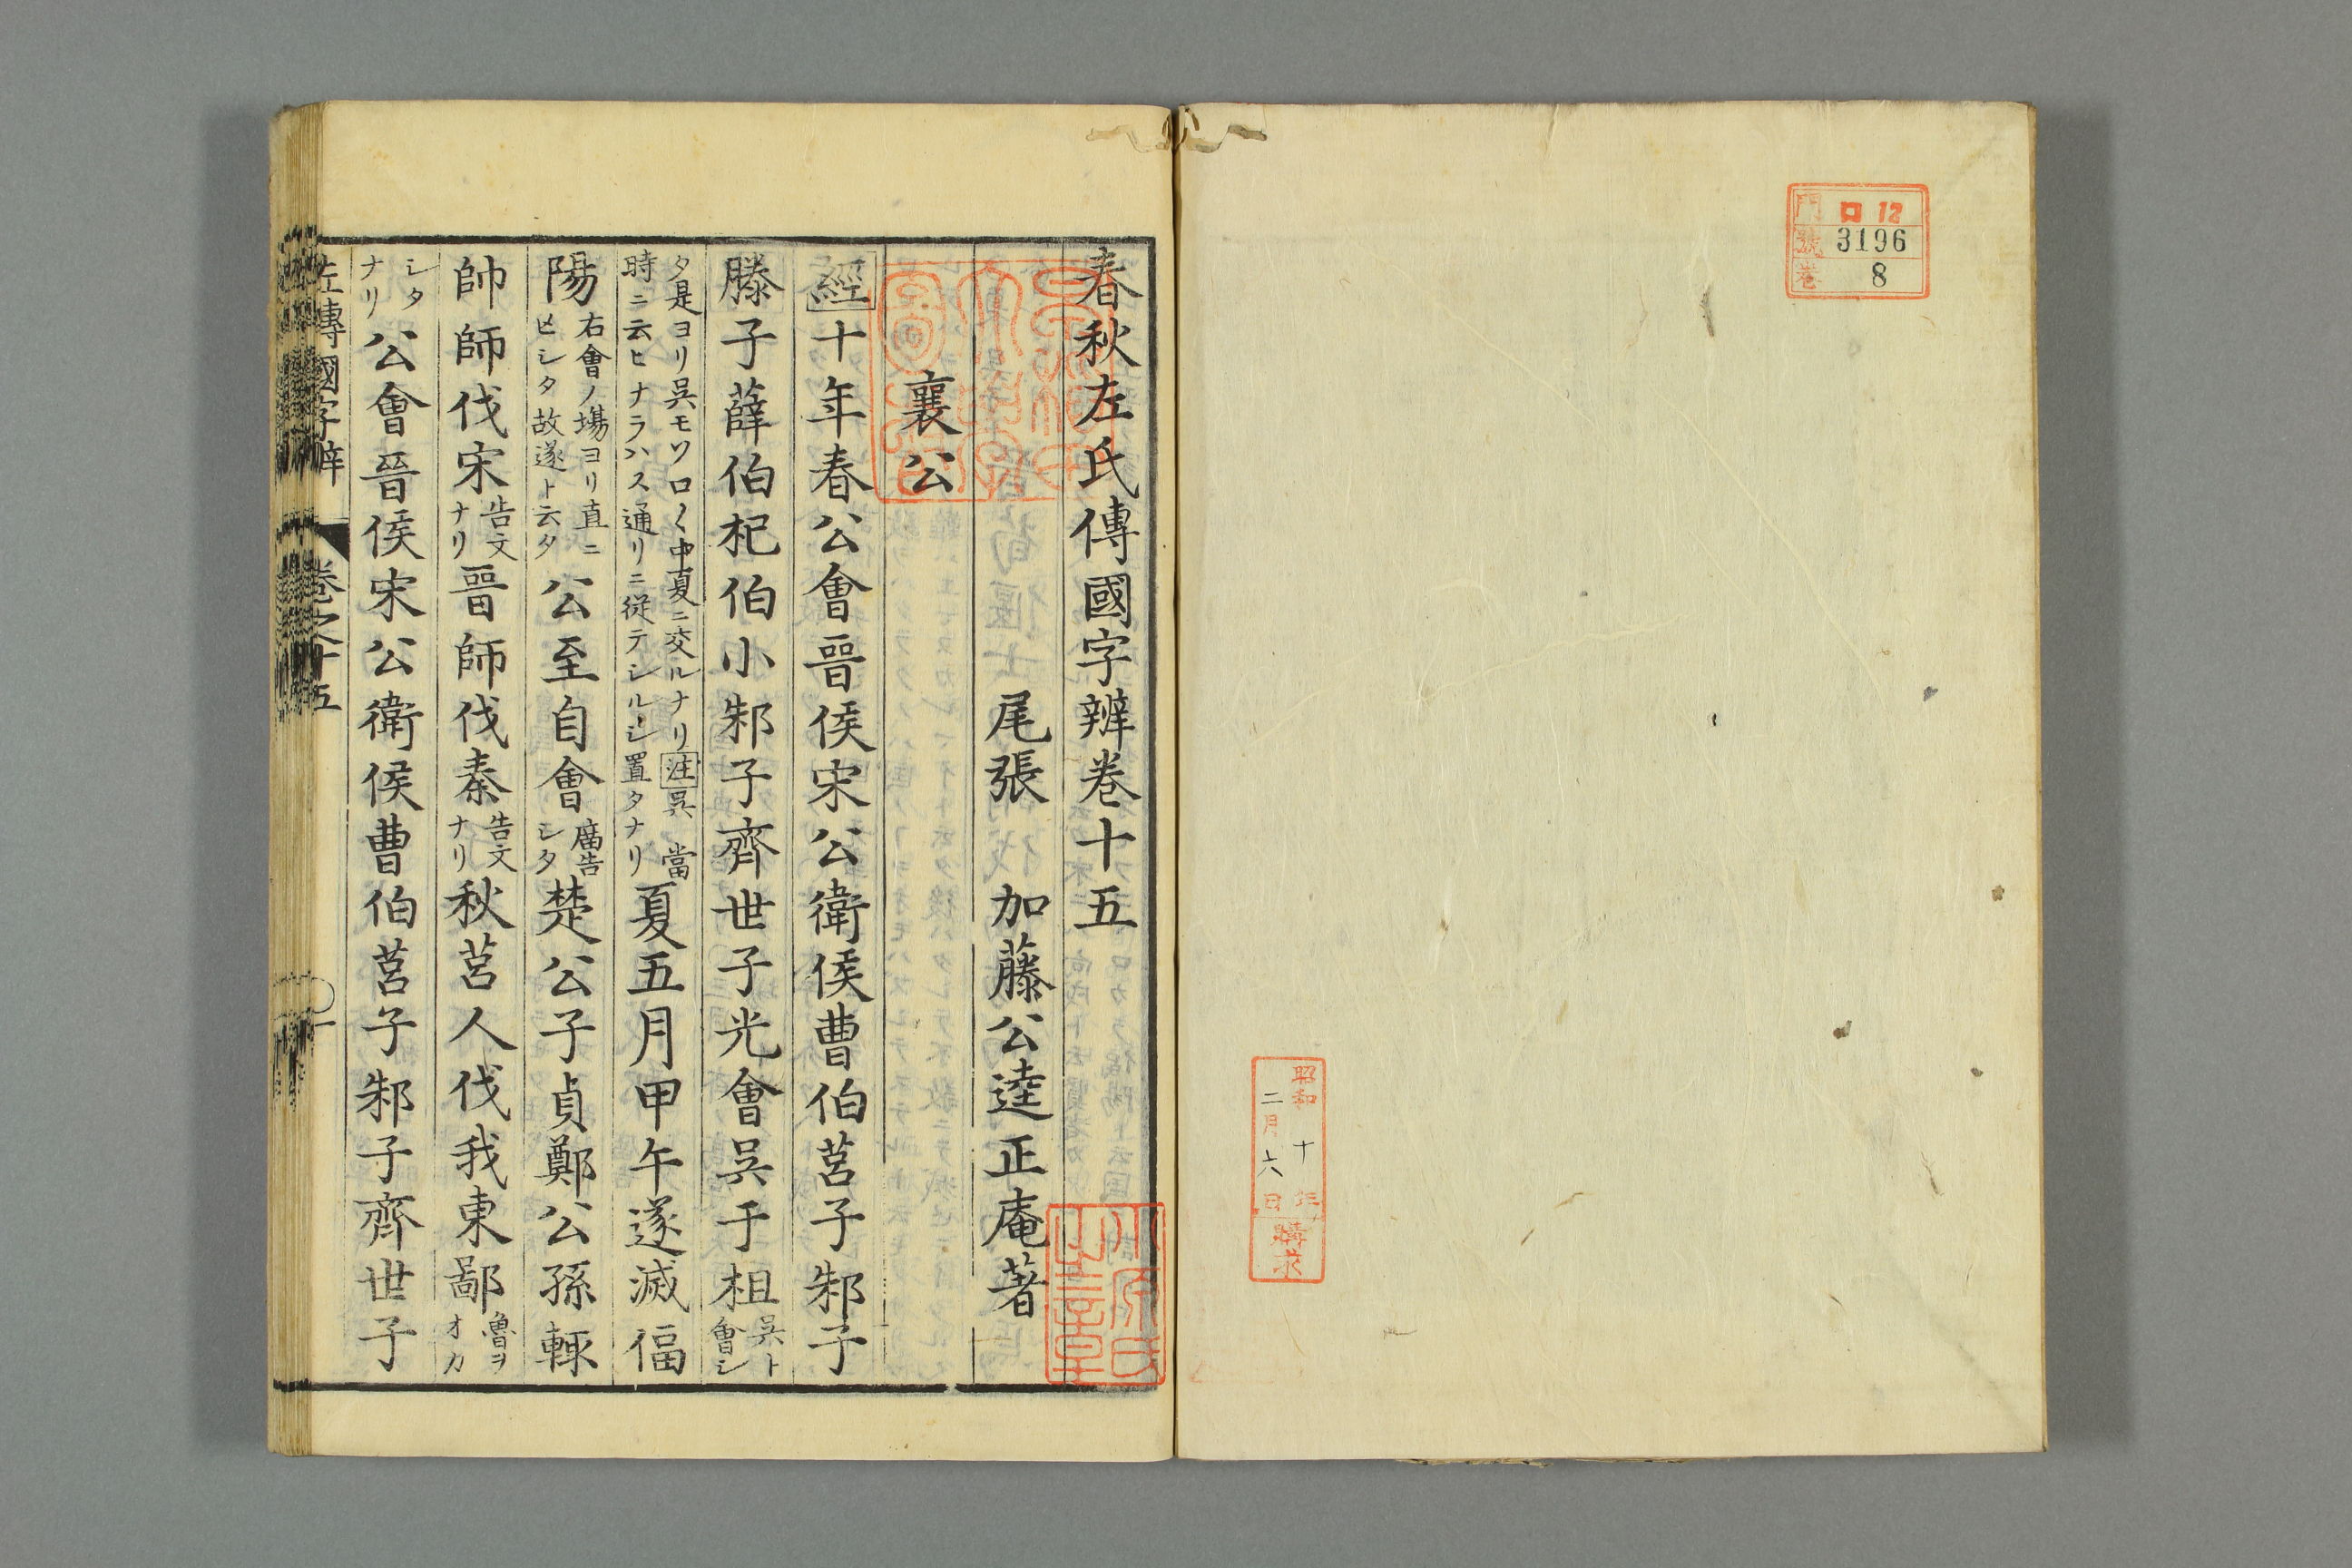 門 ロ 12
號 3196
巻 8
昭和十年
二月六日
購求
春秋左氏傳國字辨巻十五
尾張 加藤公逵正庵著
襄公
經十年春公會晉侯宋公衛侯曹伯莒子邾子
滕子薛伯杞伯小邾子齊世子光會吳于柤吳ト會シ
タ是ヨリ吳モソロ〱中夏ニ交ルナリ注吳 當時ニ云ヒナラハス通リニ従テシルシ置タナリ夏五月甲午遂滅偪
陽右會ノ場ヨリ直ニヒシタ故遂ト云タ公至自會廣告シタ楚公子貞鄭公孫輒
帥師伐宋告文ナリ晉師伐秦告文ナリ秋莒人伐我東鄙魯ヲオカ
シタナリ公會晉侯宋公衛侯曹伯莒子邾子齊世子
左傳國字辨 巻之十五 一